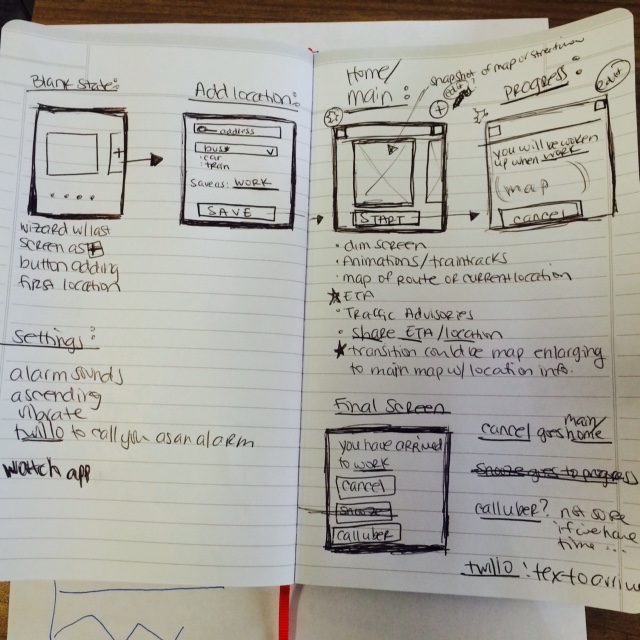 Blank state:
+
wizard w/last
screen as +
button adding
first location
Add location:
address
bus v
car
train
Save as: WORK
SAVE
Settings:
alarm sounds
ascending
vibrate
twillo to call you as an alarm
watch app
Home/
main:
snapshot of map or streetview
+
START
progress:
You will be woken
up when work
(map)
cancel
• dim screen
• Animations/traintracks
• map of route or current location
★ ETA
• Traffic Advisories
• share ETA/location
★ transition could be map enlarging
to main map w/ location info.
Final Screen
you have arrived
to work
cancel
snooze
call uber
cancel goes main/
home
snooze goes to progress
call uber? not sure
if we have
time...
twillo: text to arrive